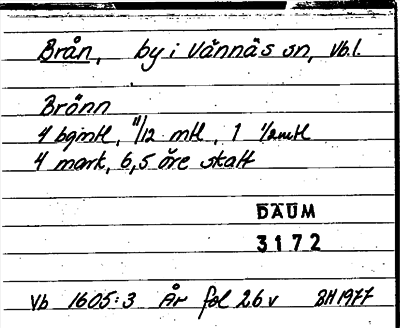 Brån, by i Vännäs sn, Vb.l.
Brönn
4 bgmtl, 11/12 mtl, 1 1/2mtl
4 mark, 6,5 öre skatt
DAUM
3172
Vb 1605:3 År fol 26v BH1977